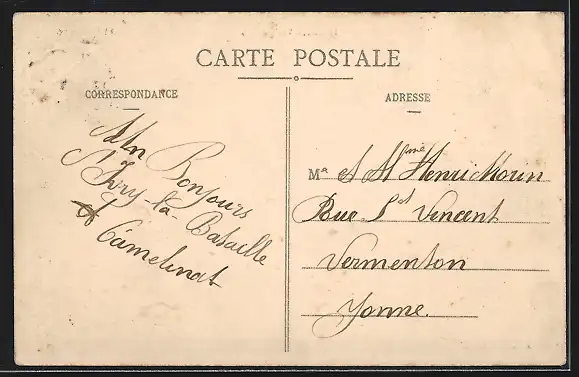 CARTE POSTALE
CORRESPONDANCE
Un Bonjours
d'Ivry-la-Bataille
Camelinat
ADRESSE
M et Mme Henri Morin
Rue St Vincent
Vermenton
Yonne.